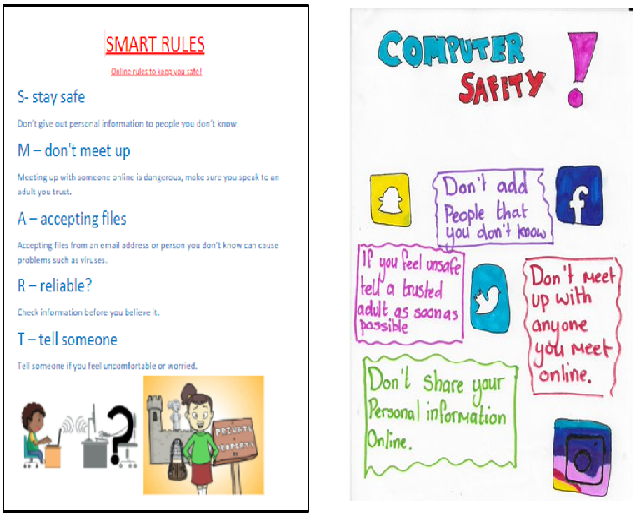 SMART RULES
Online rules to keep you safe!
S- stay safe
Don't give out personal information to people you don't know
M – don't meet up
Meeting up with someone online is dangerous, make sure you speak to an
adult you trust.
A – accepting files
Accepting files from an email address or person you don't know can cause
problems such as viruses.
R – reliable?
Check information before you believe it.
T – tell someone
Tell someone if you feel uncomfortable or worried.
?
PRIVATE
PROPERTY
COMPUTER
SAFITY !
Don't add
People that
you don't know
f
If you feel unsafe
tell a trusted
adult as soon as
possible
Don't meet
up with
anyone
you meet
online.
Don't share your
Personal information
Online.